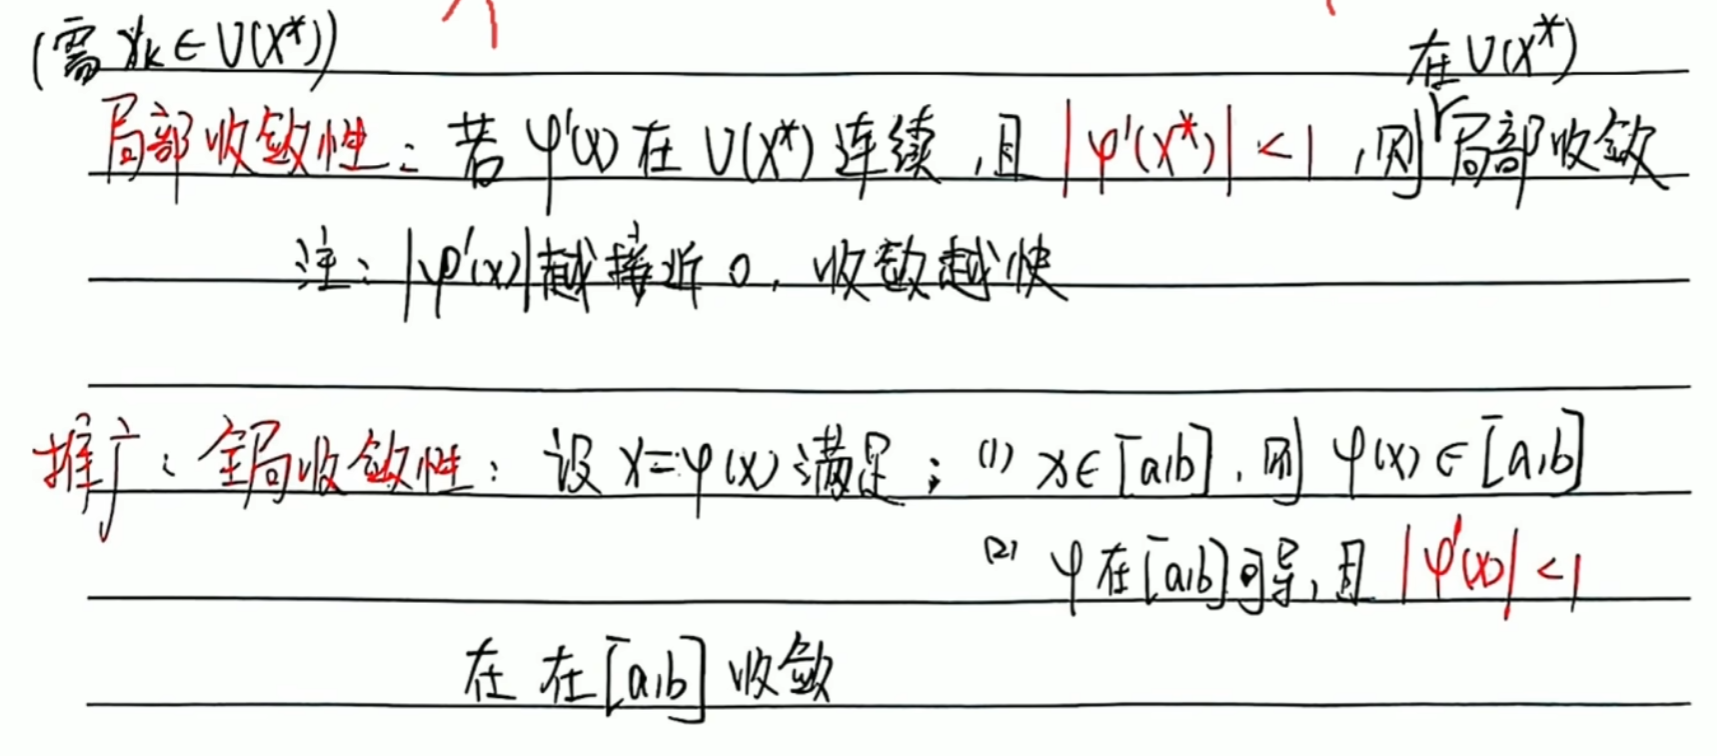 (需 x_k ∈ U(x*))
在 U(x*)
局部收敛性：若 φ'(x) 在 U(x*) 连续，且 |φ'(x*)| < 1，则局部收敛
注：|φ'(x)| 越接近 0，收敛越快
推广：全局收敛性：设 x=φ(x) 满足：(1) x∈[a,b]，则 φ(x)∈[a,b]
(2) φ 在[a,b]可导，且 |φ'(x)| <1
在 在[a,b] 收敛